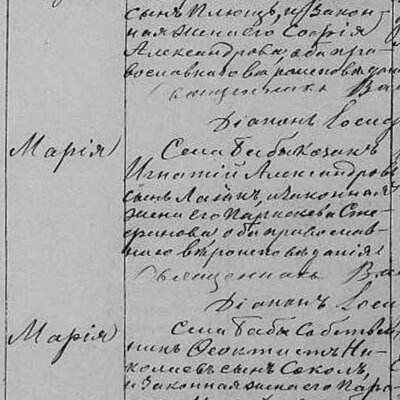 сынъ Плющъ, и закон-
ная жена его Софія
Александрова, оба пра-
вославнаго вѣроисповѣданія
Священникъ
Діаконъ Іоси
Марія
Села Бабы казакъ
Игнатій Александровъ
сынъ и законная
жена его Параскева Сте-
фанова оба православ-
наго вѣроисповѣданія
Священникъ
Діаконъ Іоси
Марія
Села Бабы Собствен-
никъ Ѳеоктистъ Ни-
колаевъ сынъ Соколъ,
и законная жена его Пара-